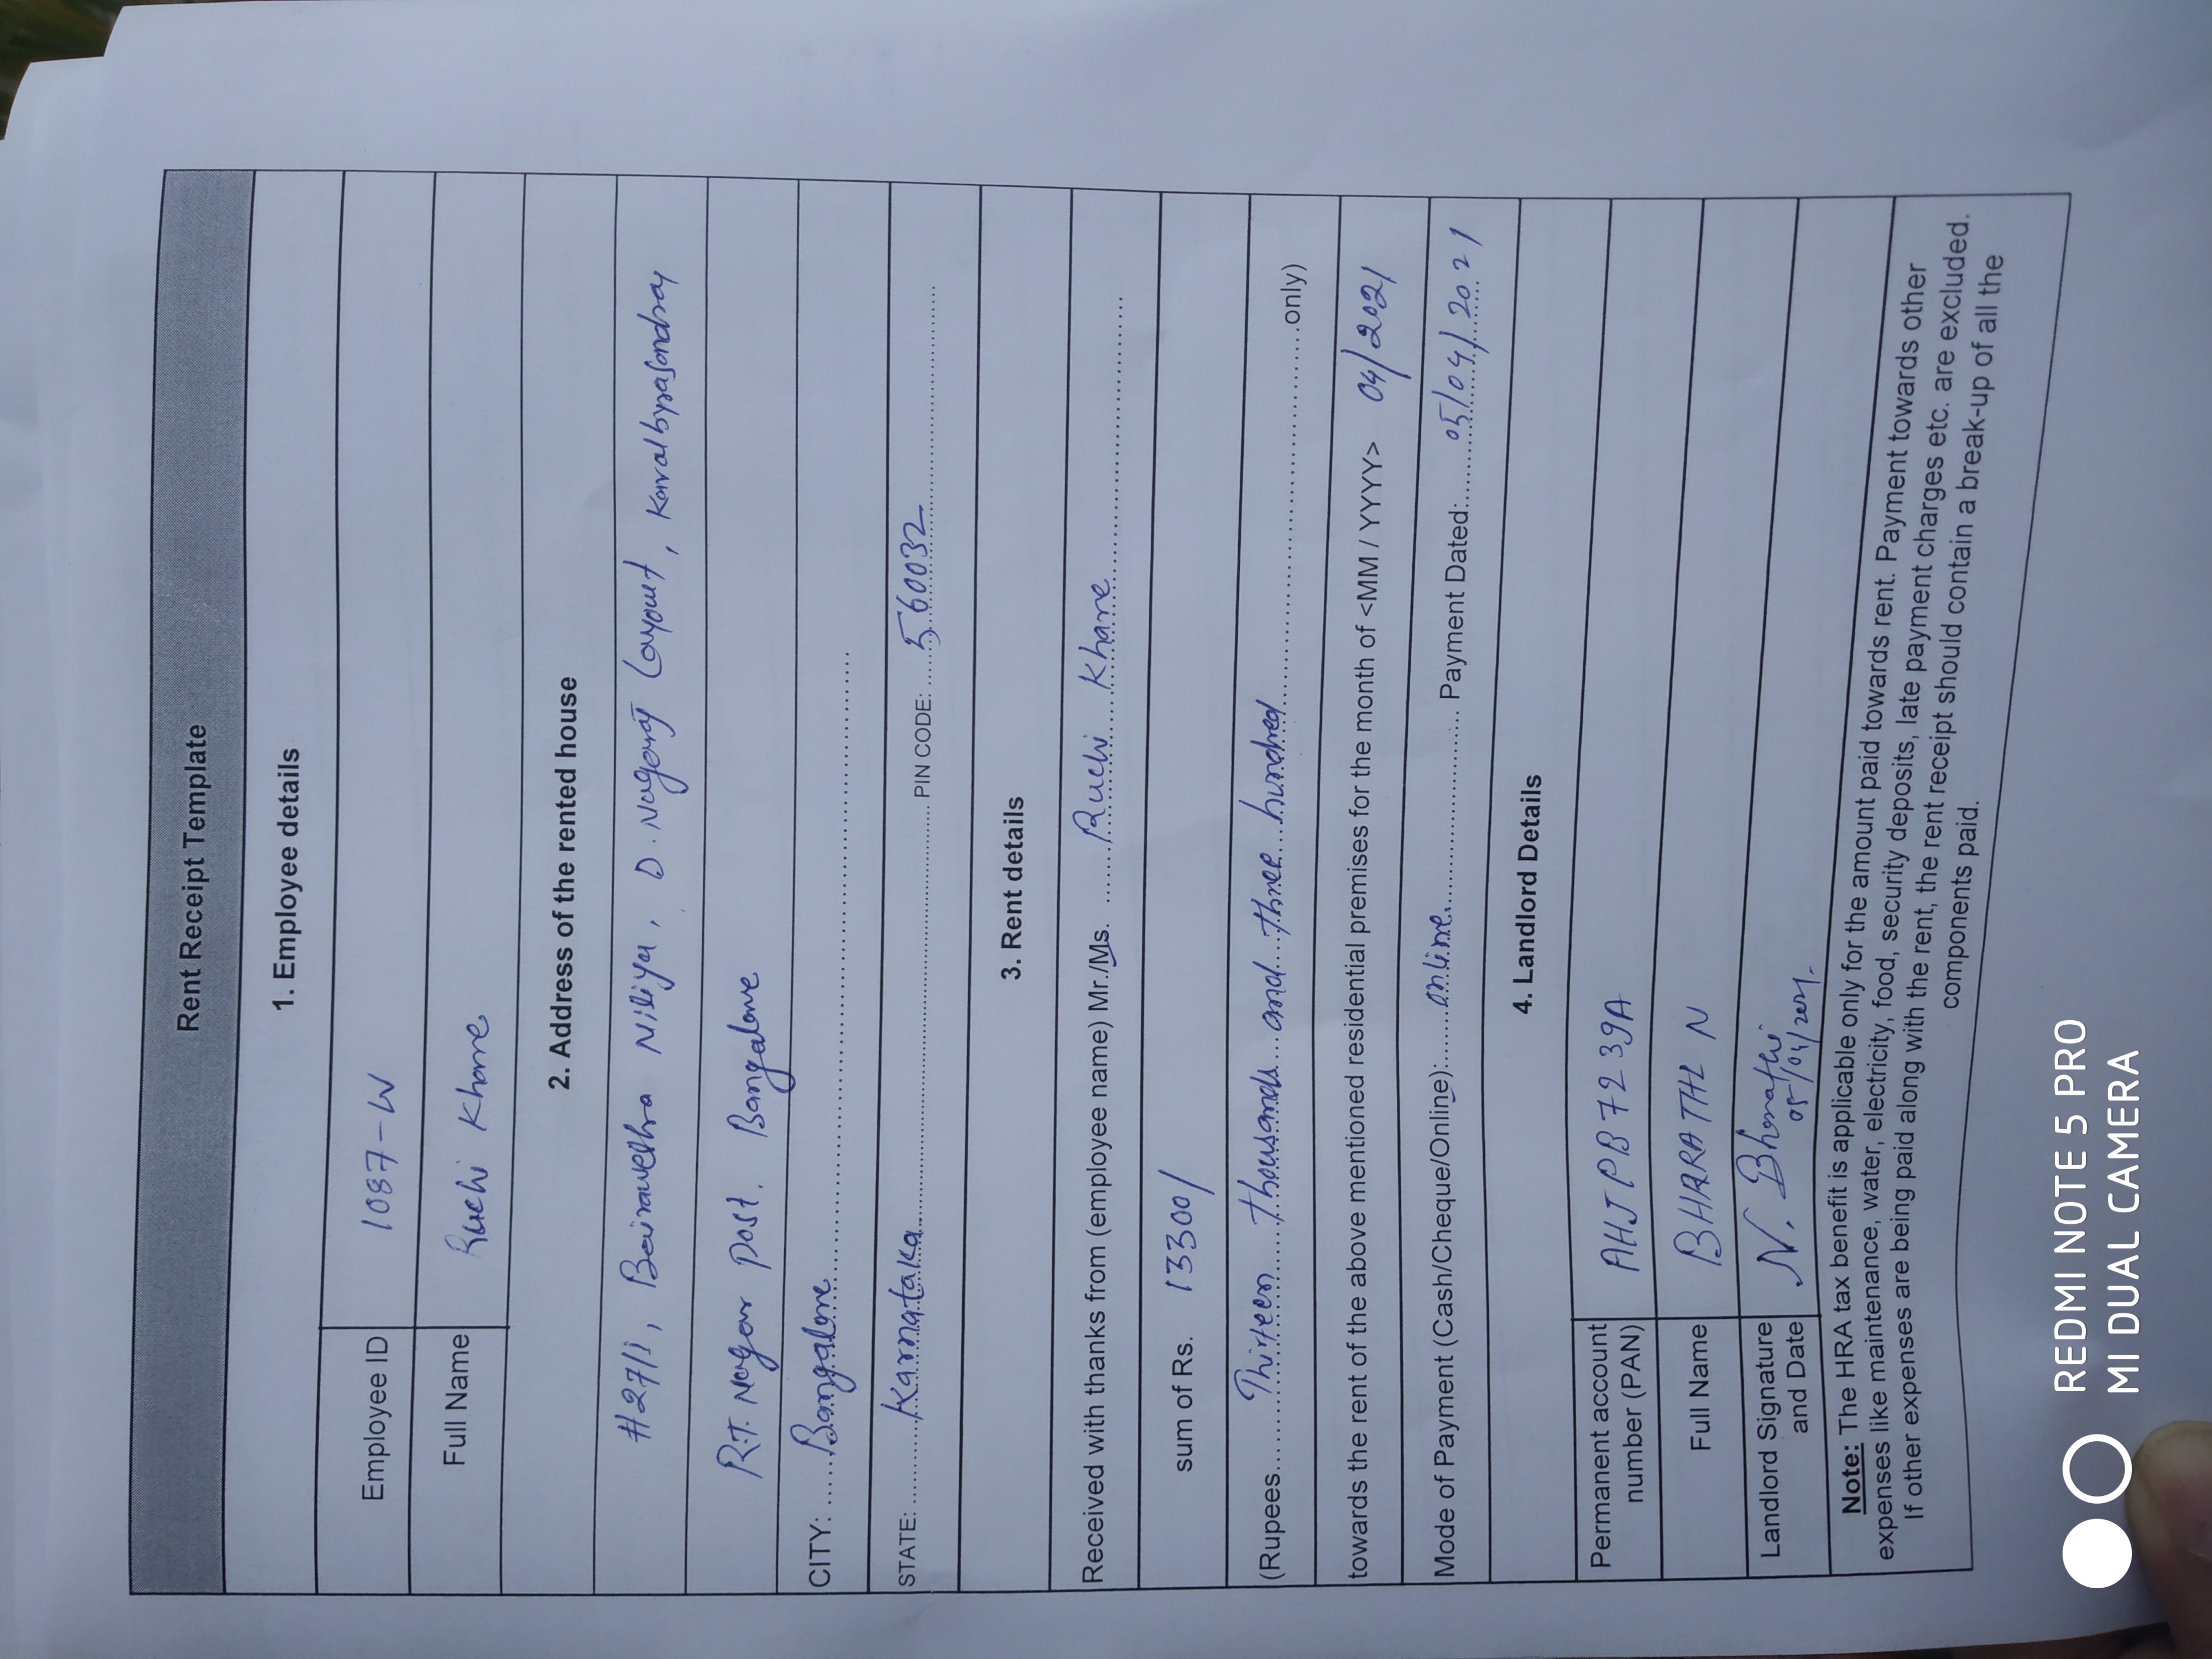 Rent Receipt Template
1. Employee details
Employee ID 1087-W
Full Name Ruchi Khare
2. Address of the rented house
#27/1, Niliya, D. Nagaraj Layout,
R.T. Nagar post. Bangalore
CITY: Bangalore
STATE: Karnataka PIN CODE: 560032
3. Rent details
Received with thanks from (employee name) Mr./Ms. Ruchi Khare
sum of Rs. 13300/
(Rupees Thirteen thousands and three hundred only)
towards the rent of the above mentioned residential premises for the month of <MM / YYYY> 04/2021
Mode of Payment (Cash/Cheque/Online): online. Payment Dated: 05/04/2021
4. Landlord Details
Permanent account
number (PAN) AHJPB7239A
Full Name BHARATHI N
Landlord Signature N. Bharathi
and Date 05/04/2021.
Note: The HRA tax benefit is applicable only for the amount paid towards rent. Payment towards other
expenses like maintenance, water, electricity, food, security deposits, late payment charges etc. are excluded.
If other expenses are being paid along with the rent, the rent receipt should contain a break-up of all the
components paid.
REDMI NOTE 5 PRO
MI DUAL CAMERA